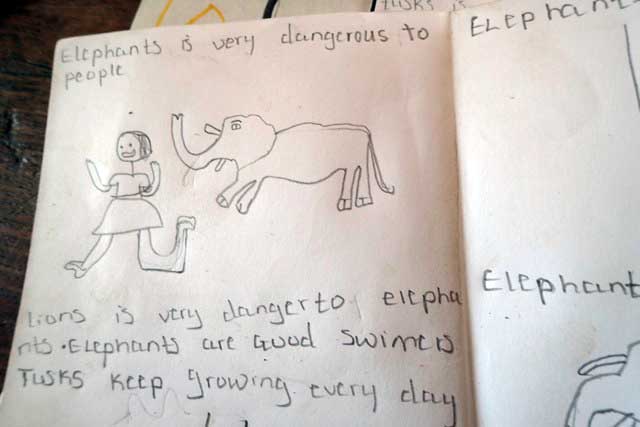 TUSKS is
Elephants is very dangerous to
people
Lions is very dangerto elepha
nts. Elephants are Good swimers
Tusks keep growing every day
Elephant
Elephant